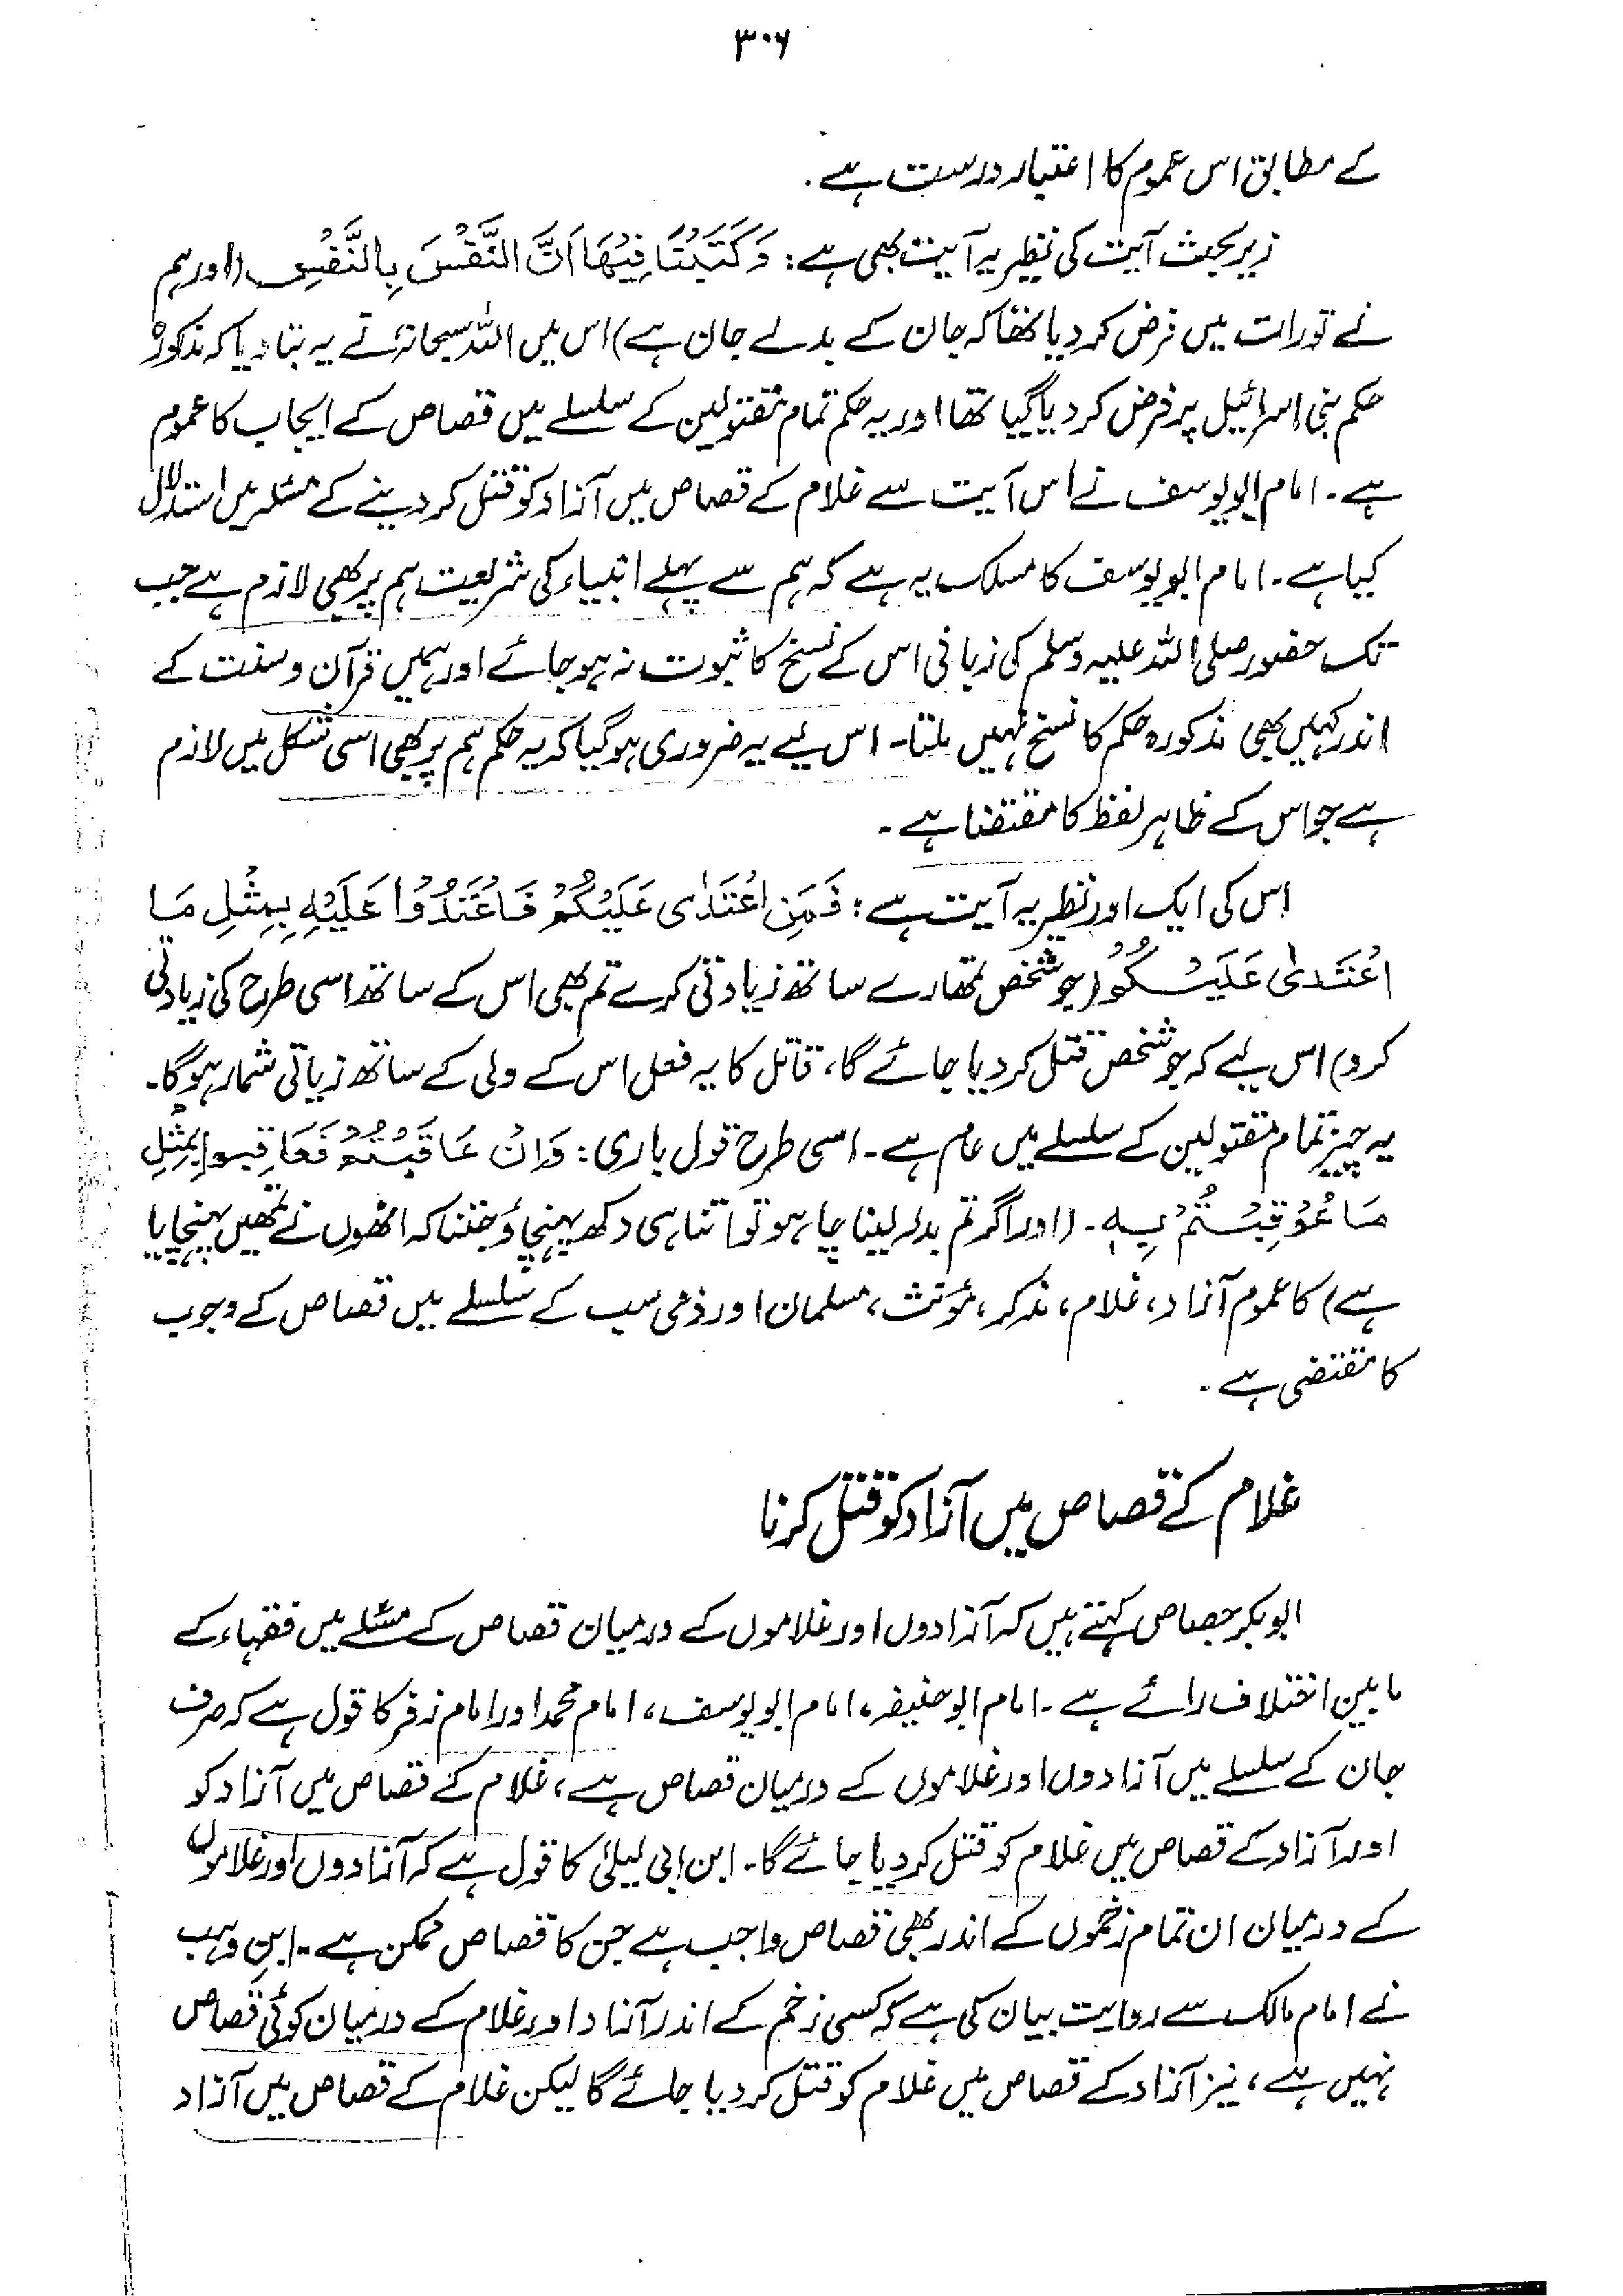 ۳۰۶
کے مطابق اس عموم کا اعتبار درست ہے۔
زیر بحث آیت کی نظیر یہ آیت بھی ہے: وَكَتَبْنَا فِيْهَا اَنَّ النَّفْسَ بِالنَّفْسِ (اور ہم
نے تورات میں فرض کر دیا تھا کہ جان کے بدلے جان ہے) اس میں اللہ سبحانہٗ نے یہ بتا دیا کہ مذکورہ
حکم بنی اسرائیل پر فرض کر دیا گیا تھا اور یہ حکم تمام مقتولین کے سلسلے میں قصاص کے ایجاب کا عموم
ہے۔ امام ابویوسف نے اس آیت سے غلام کے قصاص میں آزاد کو قتل کر دینے کے مسئلہ میں استدلال
کیا ہے۔ امام ابویوسف کا مسلک یہ ہے کہ ہم سے پہلے انبیاء کی شریعت ہم پر بھی لازم ہے جب
تک حضور صلی اللہ علیہ وسلم کی زبانی اس کے نسخ کا ثبوت نہ ہو جائے اور ہمیں قرآن و سنت کے
اندر کہیں بھی مذکورہ حکم کا نسخ نہیں ملتا۔ اس لیے یہ ضروری ہو گیا کہ یہ حکم ہم پر بھی اسی شکل میں لازم
ہے جو اس کے ظاہر لفظ کا مقتضا ہے۔
اس کی ایک اور نظیر یہ آیت ہے: فَمَنِ اعْتَدٰى عَلَيْكُمْ فَاعْتَدُوْا عَلَيْهِ بِمِثْلِ مَا
اعْتَدٰى عَلَيْكُمْ (جو شخص تمھارے ساتھ زیادتی کرے تم بھی اس کے ساتھ اسی طرح کی زیادتی
کرو) اس لیے کہ جو شخص قتل کر دیا جائے گا، قاتل کا یہ فعل اس کے ولی کے ساتھ زیاتی شمار ہو گا۔
یہ چیز تمام مقتولین کے سلسلے میں عام ہے۔ اسی طرح قول باری: وَاِنْ عَاقَبْتُمْ فَعَاقِبُوا بِمِثْلِ
مَا عُوْقِبْتُمْ بِهٖ۔ (اور اگر تم بدلہ لینا چاہو تو اتنا ہی دکھ پہنچاؤ جتنا کہ انھوں نے تمھیں پہنچایا
ہے) کا عموم آزاد، غلام، مذکر، مؤنث، مسلمان اور ذمی سب کے سلسلے میں قصاص کے وجوب
کا مقتضی ہے۔
غلام کے قصاص میں آزاد کو قتل کرنا
ابوبکر جصاص کہتے ہیں کہ آزادوں اور غلاموں کے درمیان قصاص کے مسئلے میں فقہاء کے
مابین اختلاف رائے ہے۔ امام ابوحنیفہ، امام ابویوسف، امام محمد اور امام زفر کا قول ہے کہ صرف
جان کے سلسلے میں آزادوں اور غلاموں کے درمیان قصاص ہے، غلام کے قصاص میں آزاد کو
اور آزاد کے قصاص میں غلام کو قتل کر دیا جائے گا۔ ابن ابی لیلیٰ کا قول ہے کہ آزادوں اور غلاموں
کے درمیان ان تمام زخموں کے اندر بھی قصاص واجب ہے جن کا قصاص ممکن ہے۔ ابنِ وہب
نے امام مالک سے روایت بیان کی ہے کہ کسی زخم کے اندر آزاد اور غلام کے درمیان کوئی قصاص
نہیں ہے، نیز آزاد کے قصاص میں غلام کو قتل کر دیا جائے گا لیکن غلام کے قصاص میں آزاد